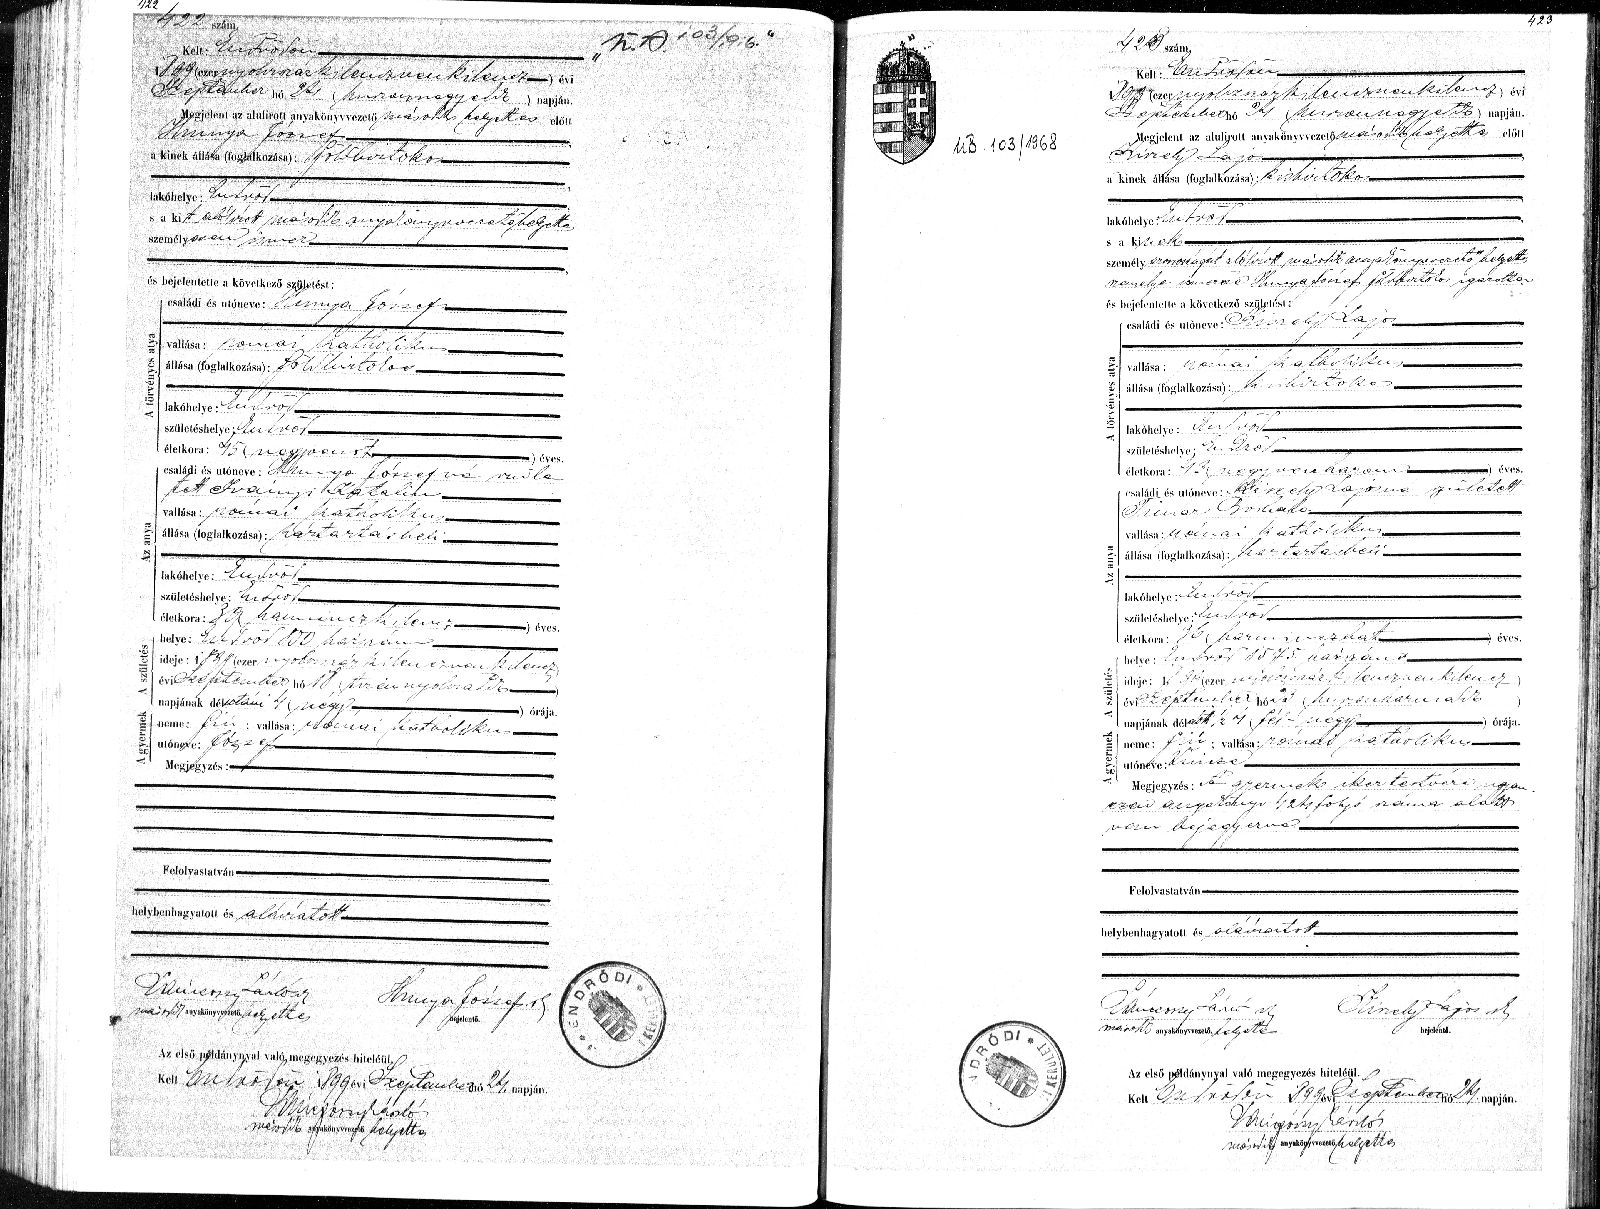 422
422 szám.
Kelt: Endrődön
1899 (ezernyolczszázkilenczvenkilencz) évi
Szeptember hó 24 (huszonnegyedik) napján.
Megjelent az alulirott anyakönyvvezető második helyettes előtt
Hunya József
a kinek állása (foglalkozása): földbirtokos
lakóhelye: Endrőd
s a kit alólirott második anyakönyvvezetőhelyettes
személyesen ismer
és bejelentette a következő születést:
A törvényes atya
családi és utóneve: Hunya József
vallása: római katholikus
állása (foglalkozása): földbirtokos
lakóhelye: Endrőd
születéshelye: Endrőd
életkora: 45 (negyvenöt) éves.
Az anya
családi és utóneve: Hunya Józsefné szüle
tett Iványi Katalin
vallása: római katholikus
állása (foglalkozása): háztartásbeli
lakóhelye: Endrőd
születéshelye: Endrőd
életkora: 39 (harminczkilencz) éves.
A születés
helye: Endrőd 850 házszám
ideje: 1899 (ezernyolczszázkilenczvenkilencz)
évi Szeptember hó 18 (tizennyolczadik)
napjának délutáni 4 (negy) órája.
A gyermek
neme: fiú; vallása: római katholikus
utóneve: József
Megjegyzés:
Felolvastatván
helybenhagyatott és aláiratott
második anyakönyvvezető helyettes
Hunya József
bejelentő.
ENDRŐDI
Az első példánynyal való megegyezés hiteléül.
Kelt Endrődön 1899 évi Szeptember hó 24 napján.
második anyakönyvvezető helyettes
423
423 szám.
UB 103/1968
Kelt: Endrődön
1899 (ezernyolczszázkilenczvenkilencz) évi
Szeptember hó 24 (huszonnegyedik) napján.
Megjelent az alulirott anyakönyvvezető második helyettes előtt
Kinely Lajos
a kinek állása (foglalkozása): kisbirtokos
lakóhelye: Endrőd
s a kinek
személyazonosságát alólirott második anyakönyvvezető helyettes
Hunya József földbirtokos igazolta
és bejelentette a következő születést:
A törvényes atya
családi és utóneve: Kinely Lajos
vallása: római katholikus
állása (foglalkozása): kisbirtokos
lakóhelye: Endrőd
születéshelye: Endrőd
életkora: 43 (negyvenhárom) éves.
Az anya
családi és utóneve: Kinely Lajosné született
Tímár Borbála
vallása: római katholikus
állása (foglalkozása): háztartásbeli
lakóhelye: Endrőd
születéshelye: Endrőd
életkora: 36 (harminczhat) éves.
A születés
helye: Endrőd 1575 házszám
ideje: 1899 (ezernyolczszázkilenczvenkilencz)
évi Szeptember hó 23 (huszonharmadik)
napjának délelőtti ½4 (fél-negy) órája.
A gyermek
neme: fiú; vallása: római katholikus
utóneve:
Megjegyzés: A gyermek ikertestvére ugyan-
ezen anyakönyv 424 folyó száma alatt
van bejegyezve
Felolvastatván
helybenhagyatott és aláiratott
második anyakönyvvezető helyettes
Kinely Lajos
bejelentő.
NDRŐDI
Az első példánynyal való megegyezés hiteléül.
Kelt Endrődön 1899 évi Szeptember hó 24 napján.
második anyakönyvvezető helyettes